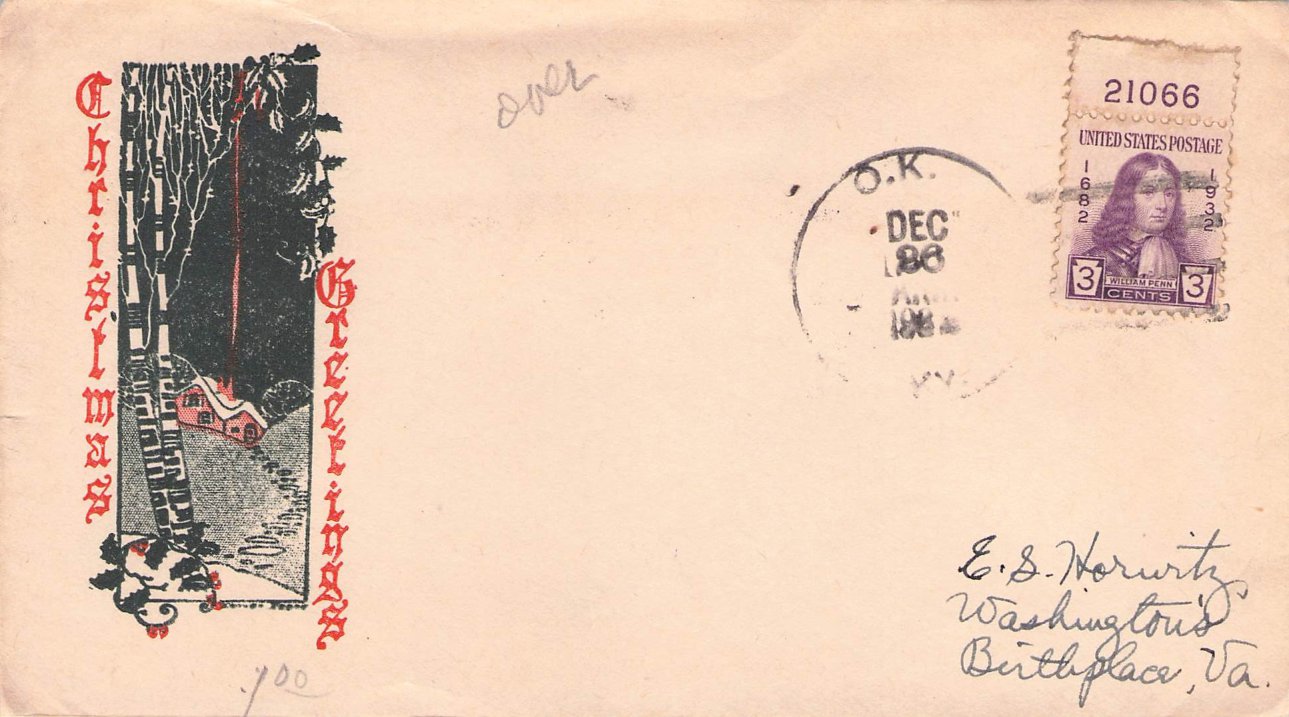 Christmas
Greetings
over
21066
UNITED STATES POSTAGE
1682
1932
3
WILLIAM PENN
CENTS
3
O.K.
DEC
E. S. Horwitz
Washington's
Birthplace, Va.